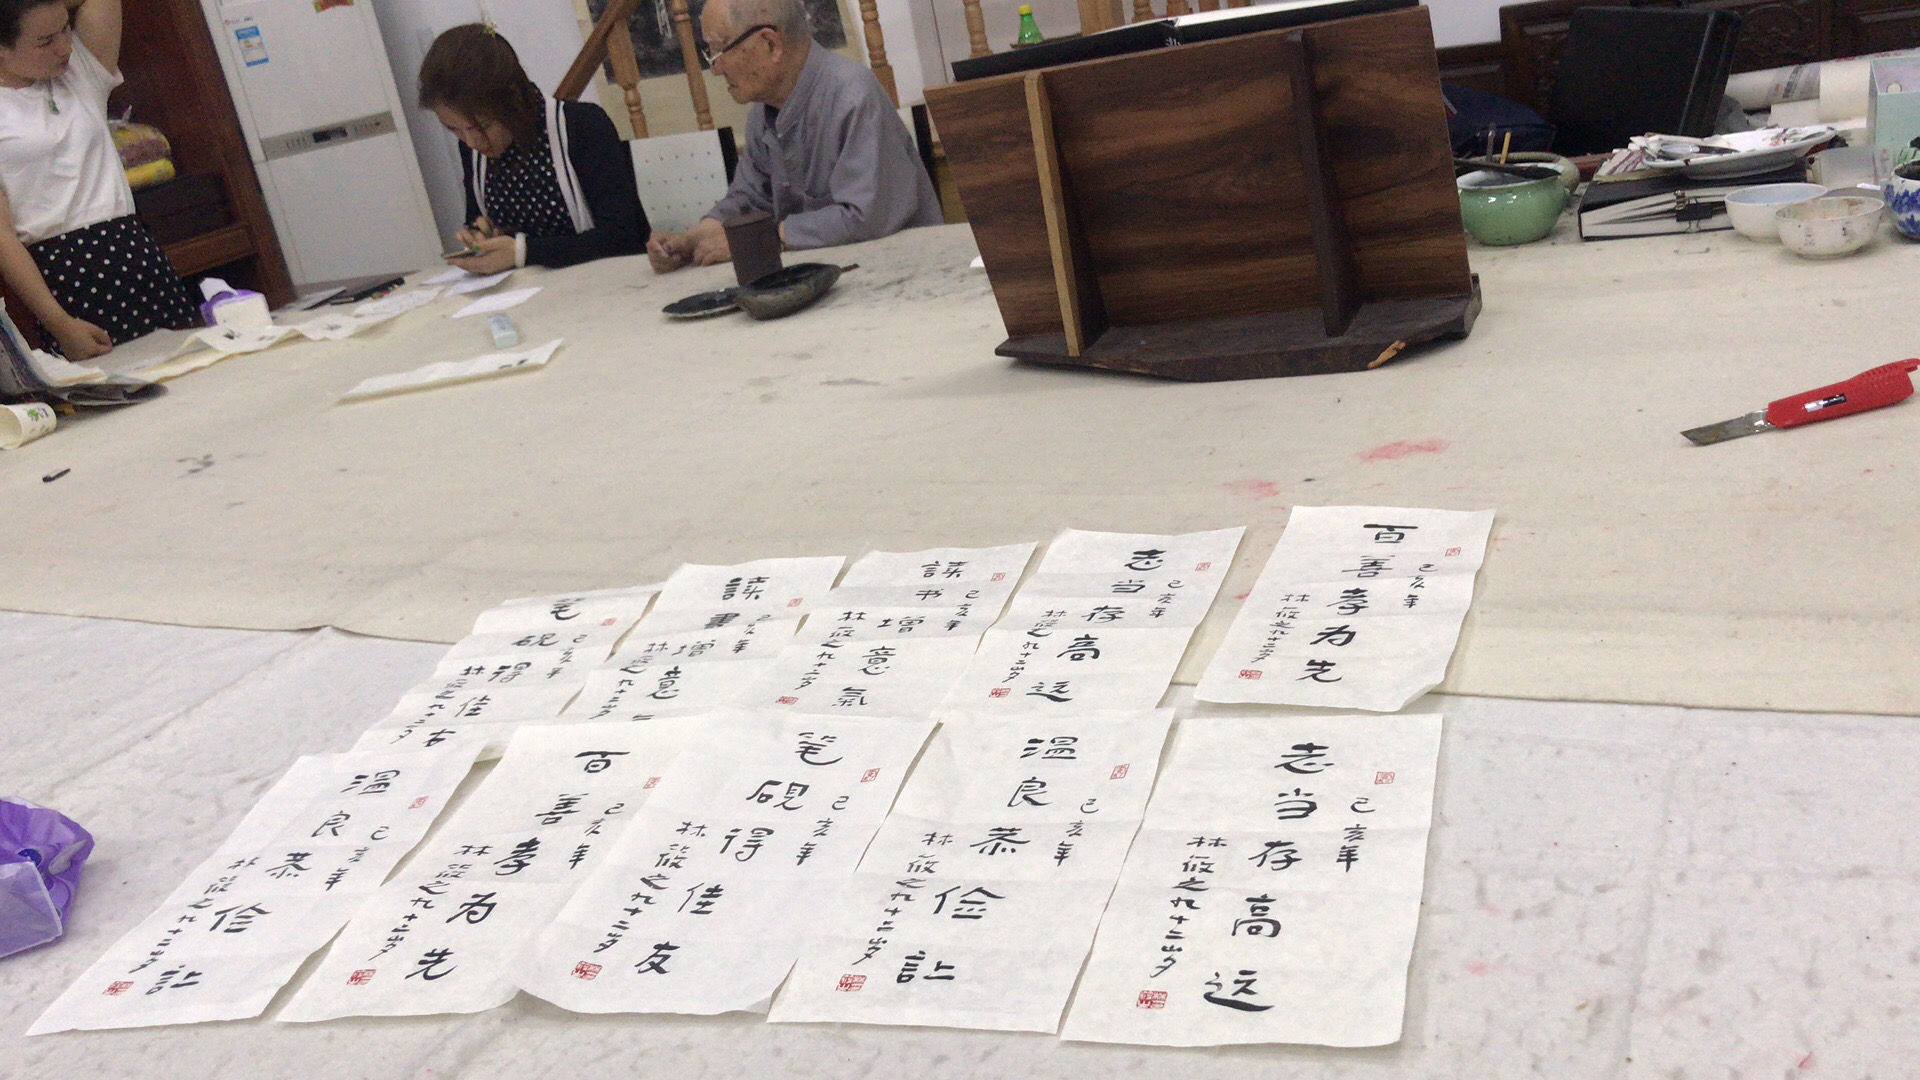 己亥年
百善孝为先
林筱之九十二岁
己亥年
志当存高远
林筱之九十二岁
己亥年
読书增意氣
林筱之九十二岁
己亥年
読書增意
林筱之九十二岁
己亥年
笔砚得佳友
林筱之九十二岁
己亥年
志当存高远
林筱之九十二岁
己亥年
温良恭俭让
林筱之九十二岁
己亥年
笔砚得佳友
林筱之九十二岁
己亥年
百善孝为先
林筱之九十二岁
己亥年
温良恭俭让
林筱之九十二岁